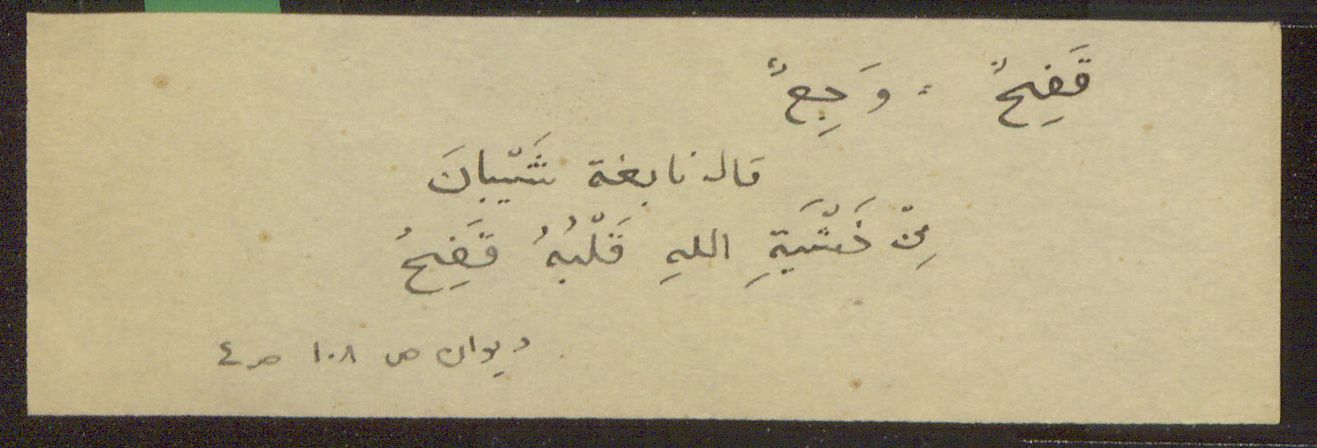 قَفِحٌ : وَجِعٌ
قال نابغة شَيْبانَ
مِنْ خَشْيَةِ اللهِ قَلْبُهُ قَفِحُ
ديوان ص ١٠٨ س ٤